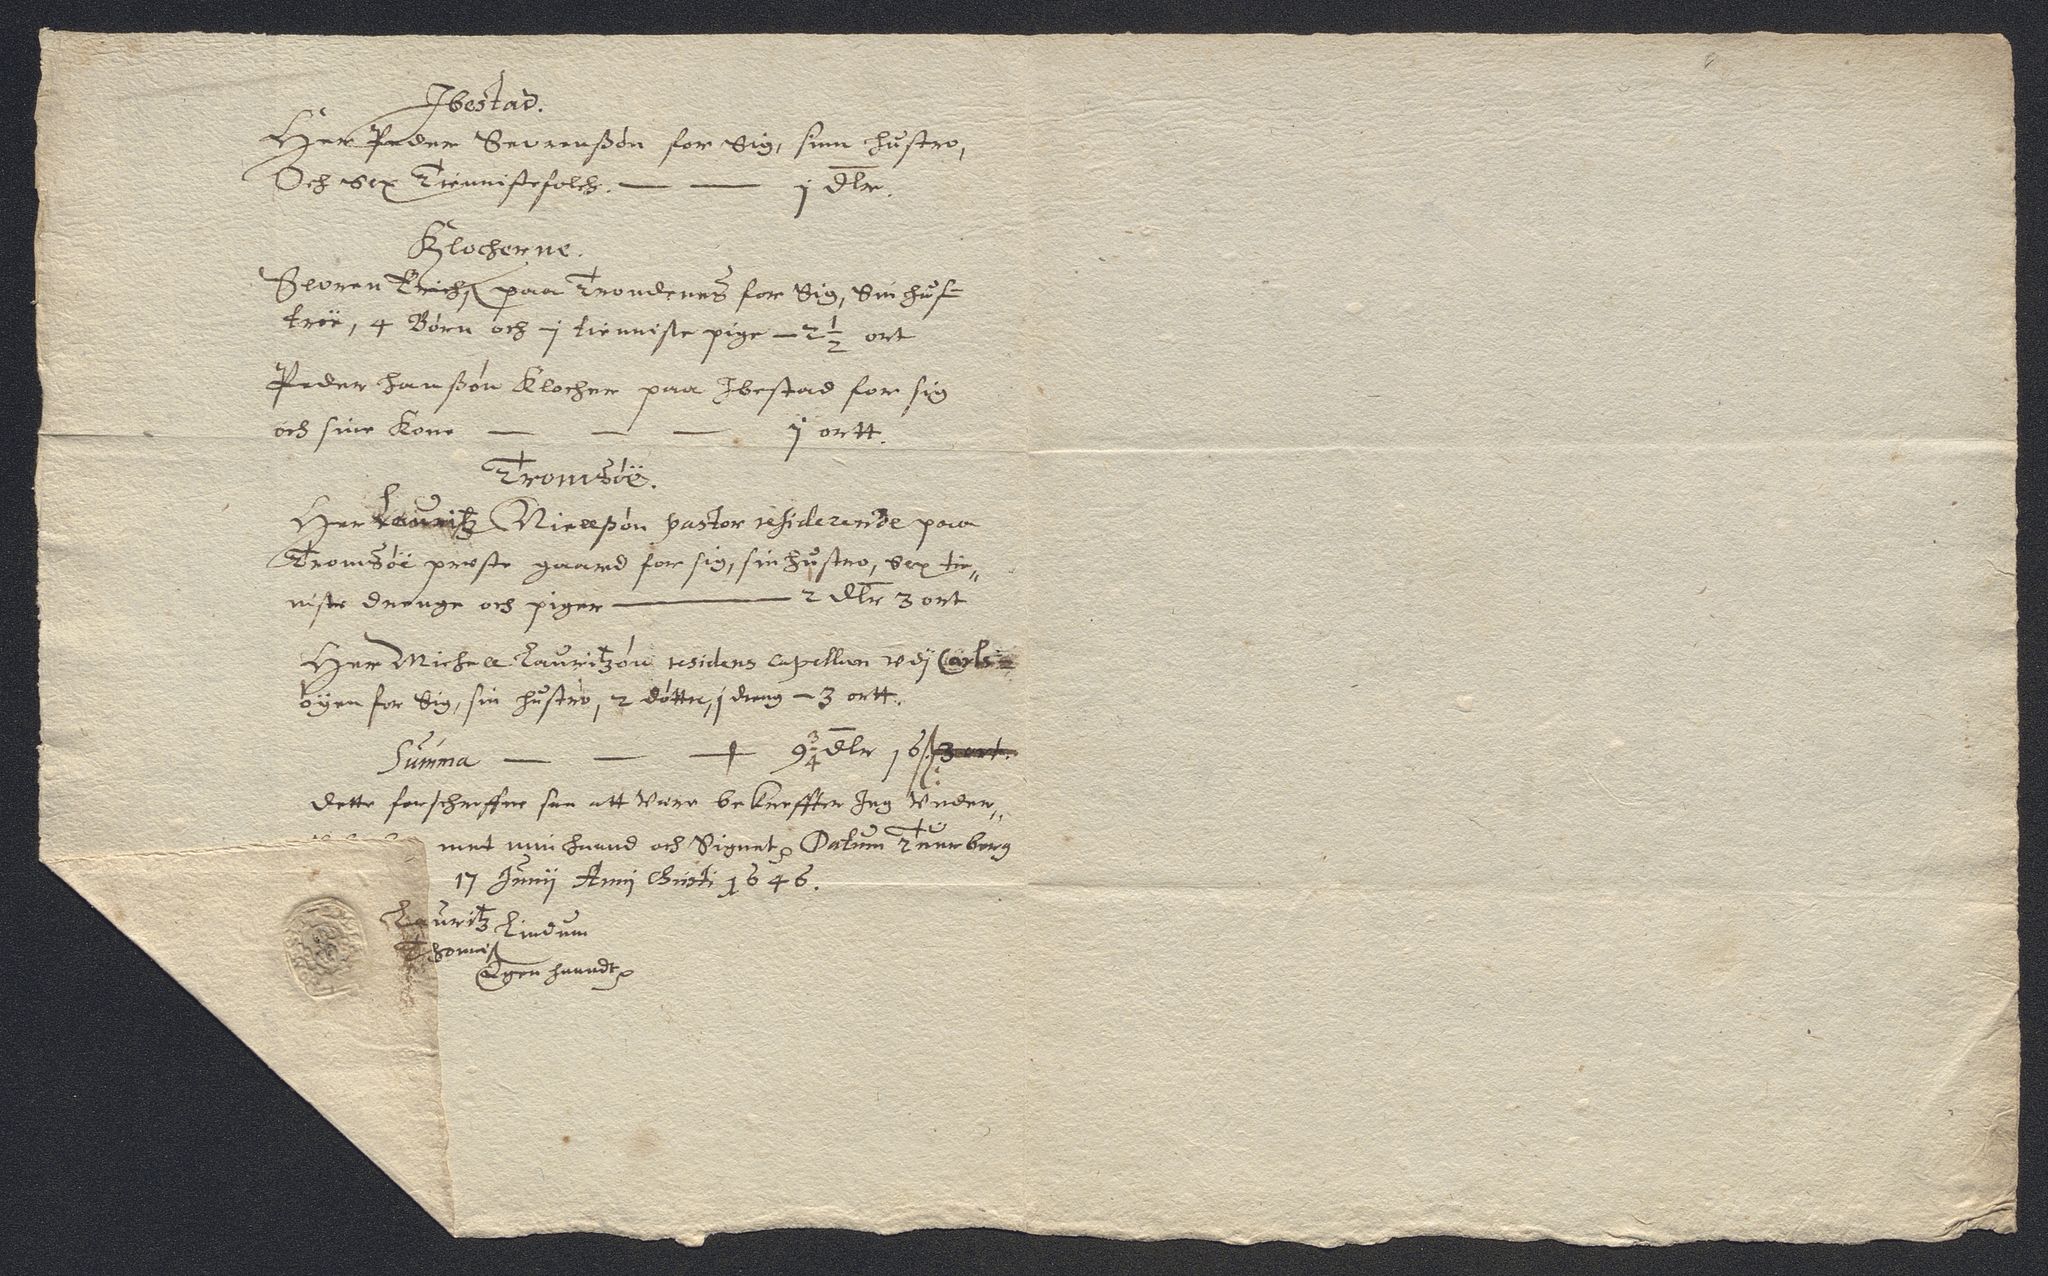 Ibestad.
Her Peder Seurenßøn for Sig, sinn hustro,
Och sex Tiennistefolch. — — j dlr.
Klocherne.
Seoren Erichß paa Trondenes for Sig, Sin hus=
troe, 4 Børn och j tienniste pige — 2 1/2 ort
Peder hanßøn Klocher paa Ibestad for sig
och sine Kone — — — j ortt.
Tromsöë.
Her Lauritz Nielßøn pastor residerende paa
Tromsöë preste gaard for sig, sin hustro, sex tie„
niste drenge och piger — 2 dlr 3 ort
Her Michell Lauritzøn residens capellan vdj Carls=
öyen for Sig, sin hustro, 2 døttre, j dreng — 3 ortt.
Summa — — — 9 3/4 dlr 16 ß 3 ort.
Dette forschreffne saa att Være bekreffter Jeg Vnder„
met min haand och Signet. Datum Tuerberg
17 Junij Anni Christi 1646.
Lauritz Lindum
Thomeß
Egen haandt